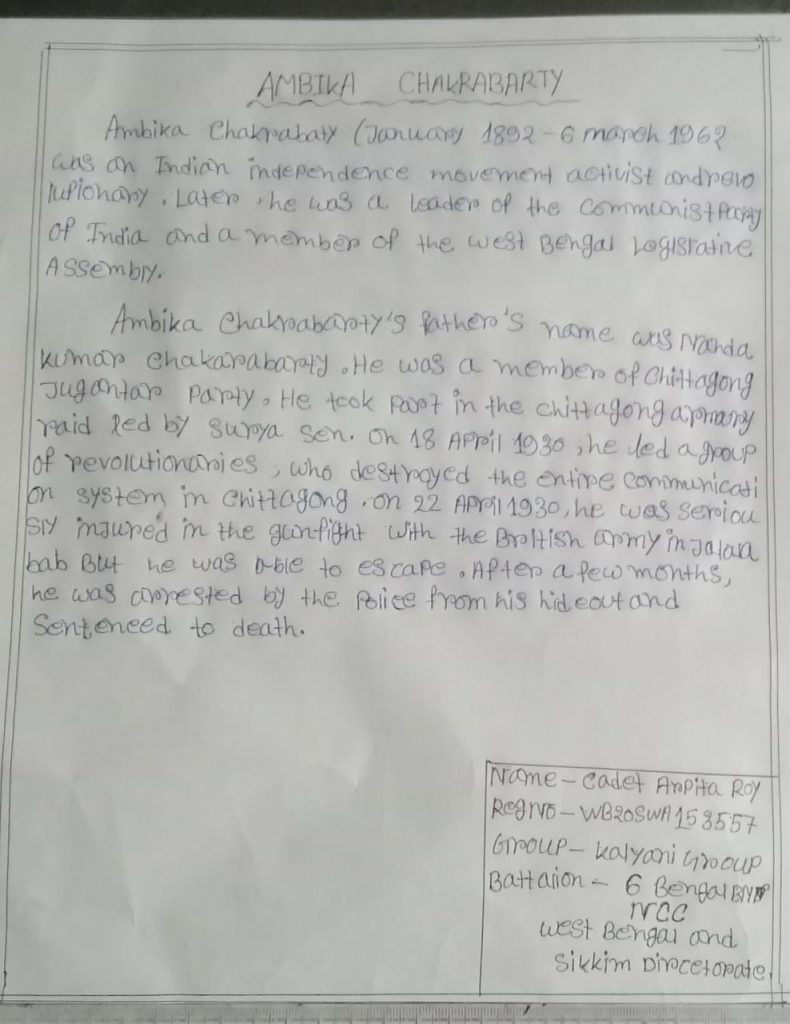 AMBIKA CHAKRABARTY
Ambika Chakrabaty (January 1892 - 6 march 1962
was an Indian independence movement activist and revo
lutionary. Later, he was a leader of the Communist Party
of India and a member of the West Bengal Legisrative
Assembly.
Ambika Chakrabarty's father's name was Nanda
kumar Chakarabarty. He was a member of Chittagong
Jugantar Party. He took part in the chittagong armary
raid led by Surya Sen. On 18 April 1930, he led a group
of revolutionaries, who destroyed the entire communicati
on system in Chittagong. on 22 April 1930, he was seriou
sly injured in the gunfight with the British army in Jalaa
bab But he was able to escape. After a few months,
he was arrested by the police from his hideout and
Sentenced to death.
Name - Cadet Arpita Roy
Reg No - WB20SWA153557
Group - Kalyani Group
Battalion - 6 Bengal BN
NCC
West Bengal and
Sikkim Dircetorate.